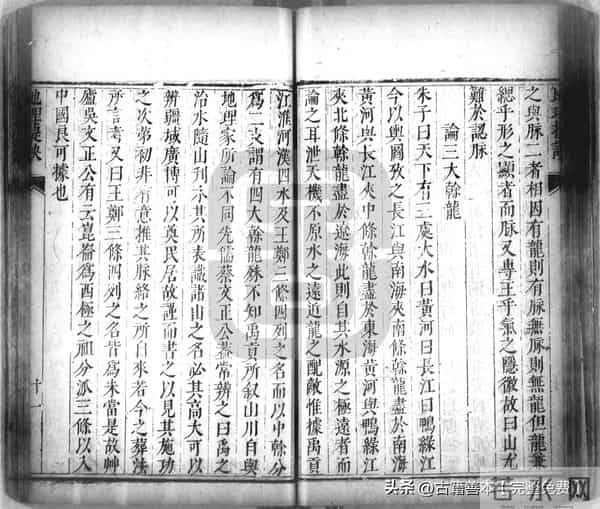 之與脉二者相因有龍則有脉無脉則無龍但龍兼
總乎形之顯者而脉又專王乎氣之隱微故曰山尤
難於認脉
論三大榦龍
朱子曰天下有三處大水曰黃河曰長江曰鴨綠江
今以輿圖攷之長江與南海夾南條榦龍盡於南海
黃河與長江夾中條榦龍盡於東海黃河與鴨綠江
夾北條榦龍盡於遼海此則自其水源之極遠者而
論之耳泄天機不原水之遠近龍之配敵惟據禹貢
江淮河漢四水及王鄭三條四列之名而以中榦分
爲二支謂有四大榦龍殊不知禹貢所叙山川自與
地理家所論不同先儒蔡文正公葢常辨之曰禹之
治水隨山刋木其所表識諸山之名必其高大可以
辨疆域廣博可以奠民居故謹而書之以見其施功
之次第初非有意推其脉絡之所自來若今之葬法
所言者又曰王鄭三條四列之名皆爲未當是故艸
廬吳文正公有云崑崙爲西極之祖分派三條以入
中國良可據也
地理
十一
头条 @古籍善本千完整免费